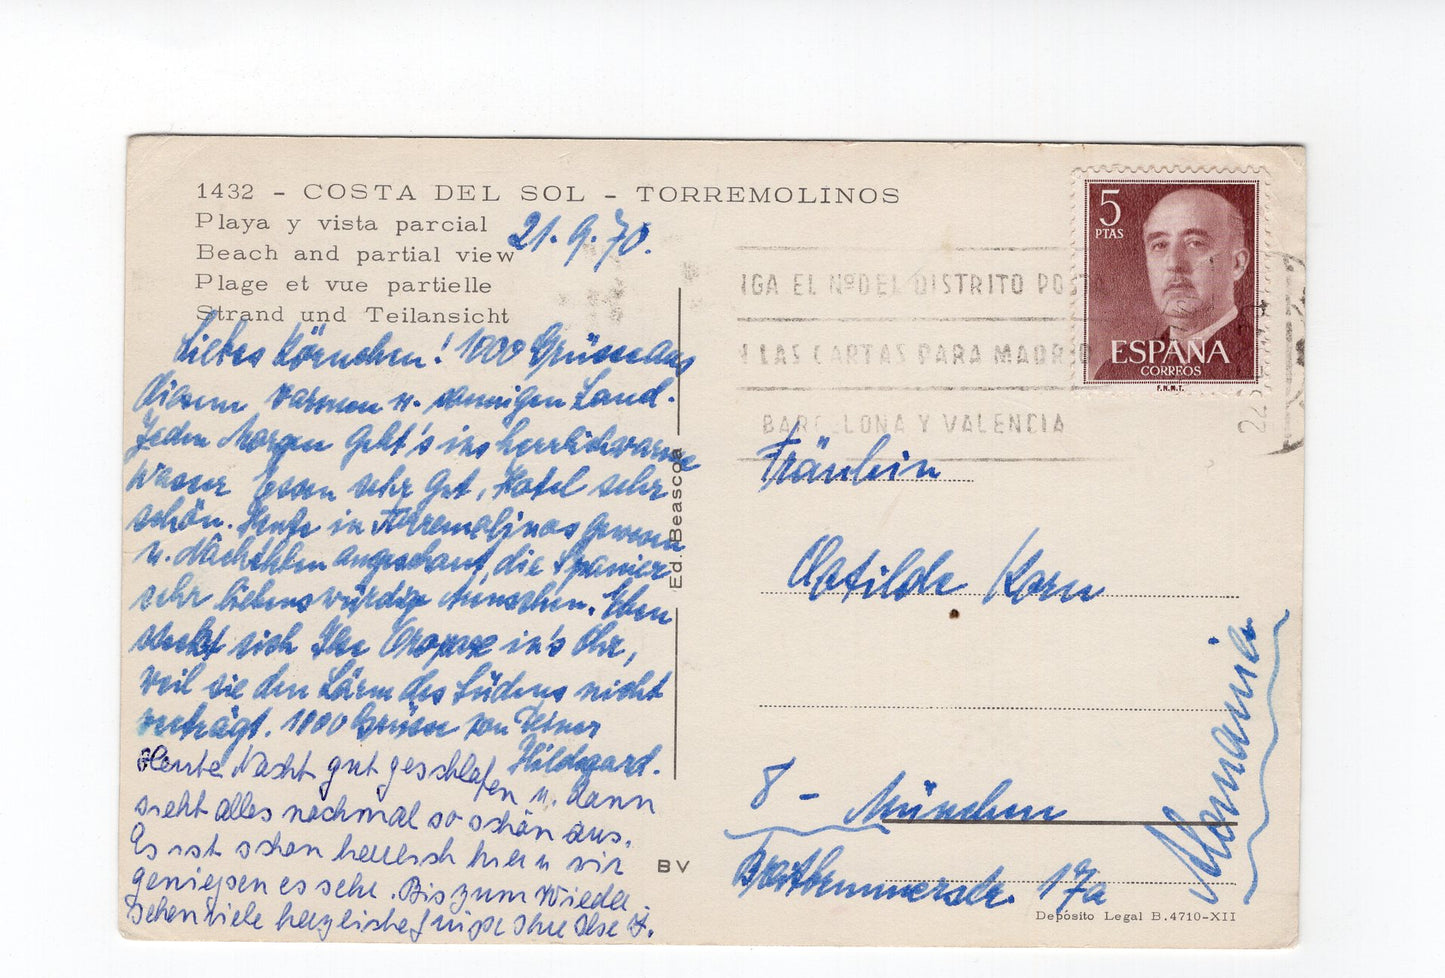 1432 - COSTA DEL SOL - TORREMOLINOS
Playa y vista parcial
Beach and partial view
Plage et vue partielle
Strand und Teilansicht
21.9.70.
Liebes Körnchen! 1000 Grüsse aus
diesem warmen u. sonnigen Land.
Jeden Morgen geht's ins herrlich warme
Wasser Essen sehr gut, Hotel sehr
schön. Heute in Torremolinos gewesen
u. Nachtleben angeschaut, die Spanier
sehr liebenswürdige Menschen. Eben
steckt sich Ilse Oropax in's Ohr,
weil sie den Lärm des Südens nicht
verträgt. 1000 Grüsse von Deiner
Hildegard.
Heute Nacht gut geschlafen u. dann
sieht alles nochmal so schön aus.
Es ist schon herrlich hier u wir
genießen es sehr. Bis zum Wieder-
sehen viele herzliche Grüße Ihre Ilse F.
Ed. Beascoa
BV
5
PTAS
ESPAÑA
CORREOS
F.N.M.T.
IGA EL Nº DEL DISTRITO POSTA
N LAS CARTAS PARA MADRID
BARCELONA Y VALENCIA
Fräulein
Clotilde Korn
8 - München
17a
Alemania
Depósito Legal B.4710-XII